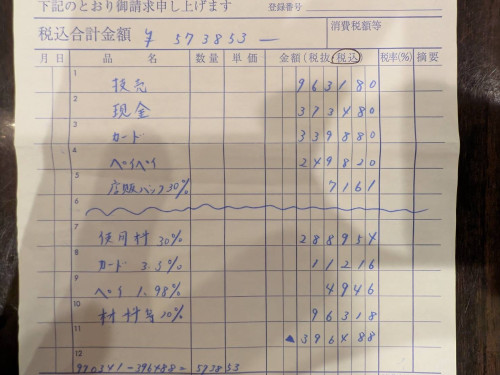 下記のとおり御請求申し上げます
登録番号
税込合計金額 ¥ 573853 ―
消費税額等
月 日 品 名 数量 単価 金額(税抜・税込) 税率(%) 摘要
1 技売 963180
2 現金 373480
3 カード 339880
4 ペイペイ 249820
5 店販バック30% 7161
6
7 使用料 30% 288954
8 カード 3.3% 11216
9 ペイ 1.98% 4946
10 材料等10% 96318
11 ▲396488
12 970341-396488=573853